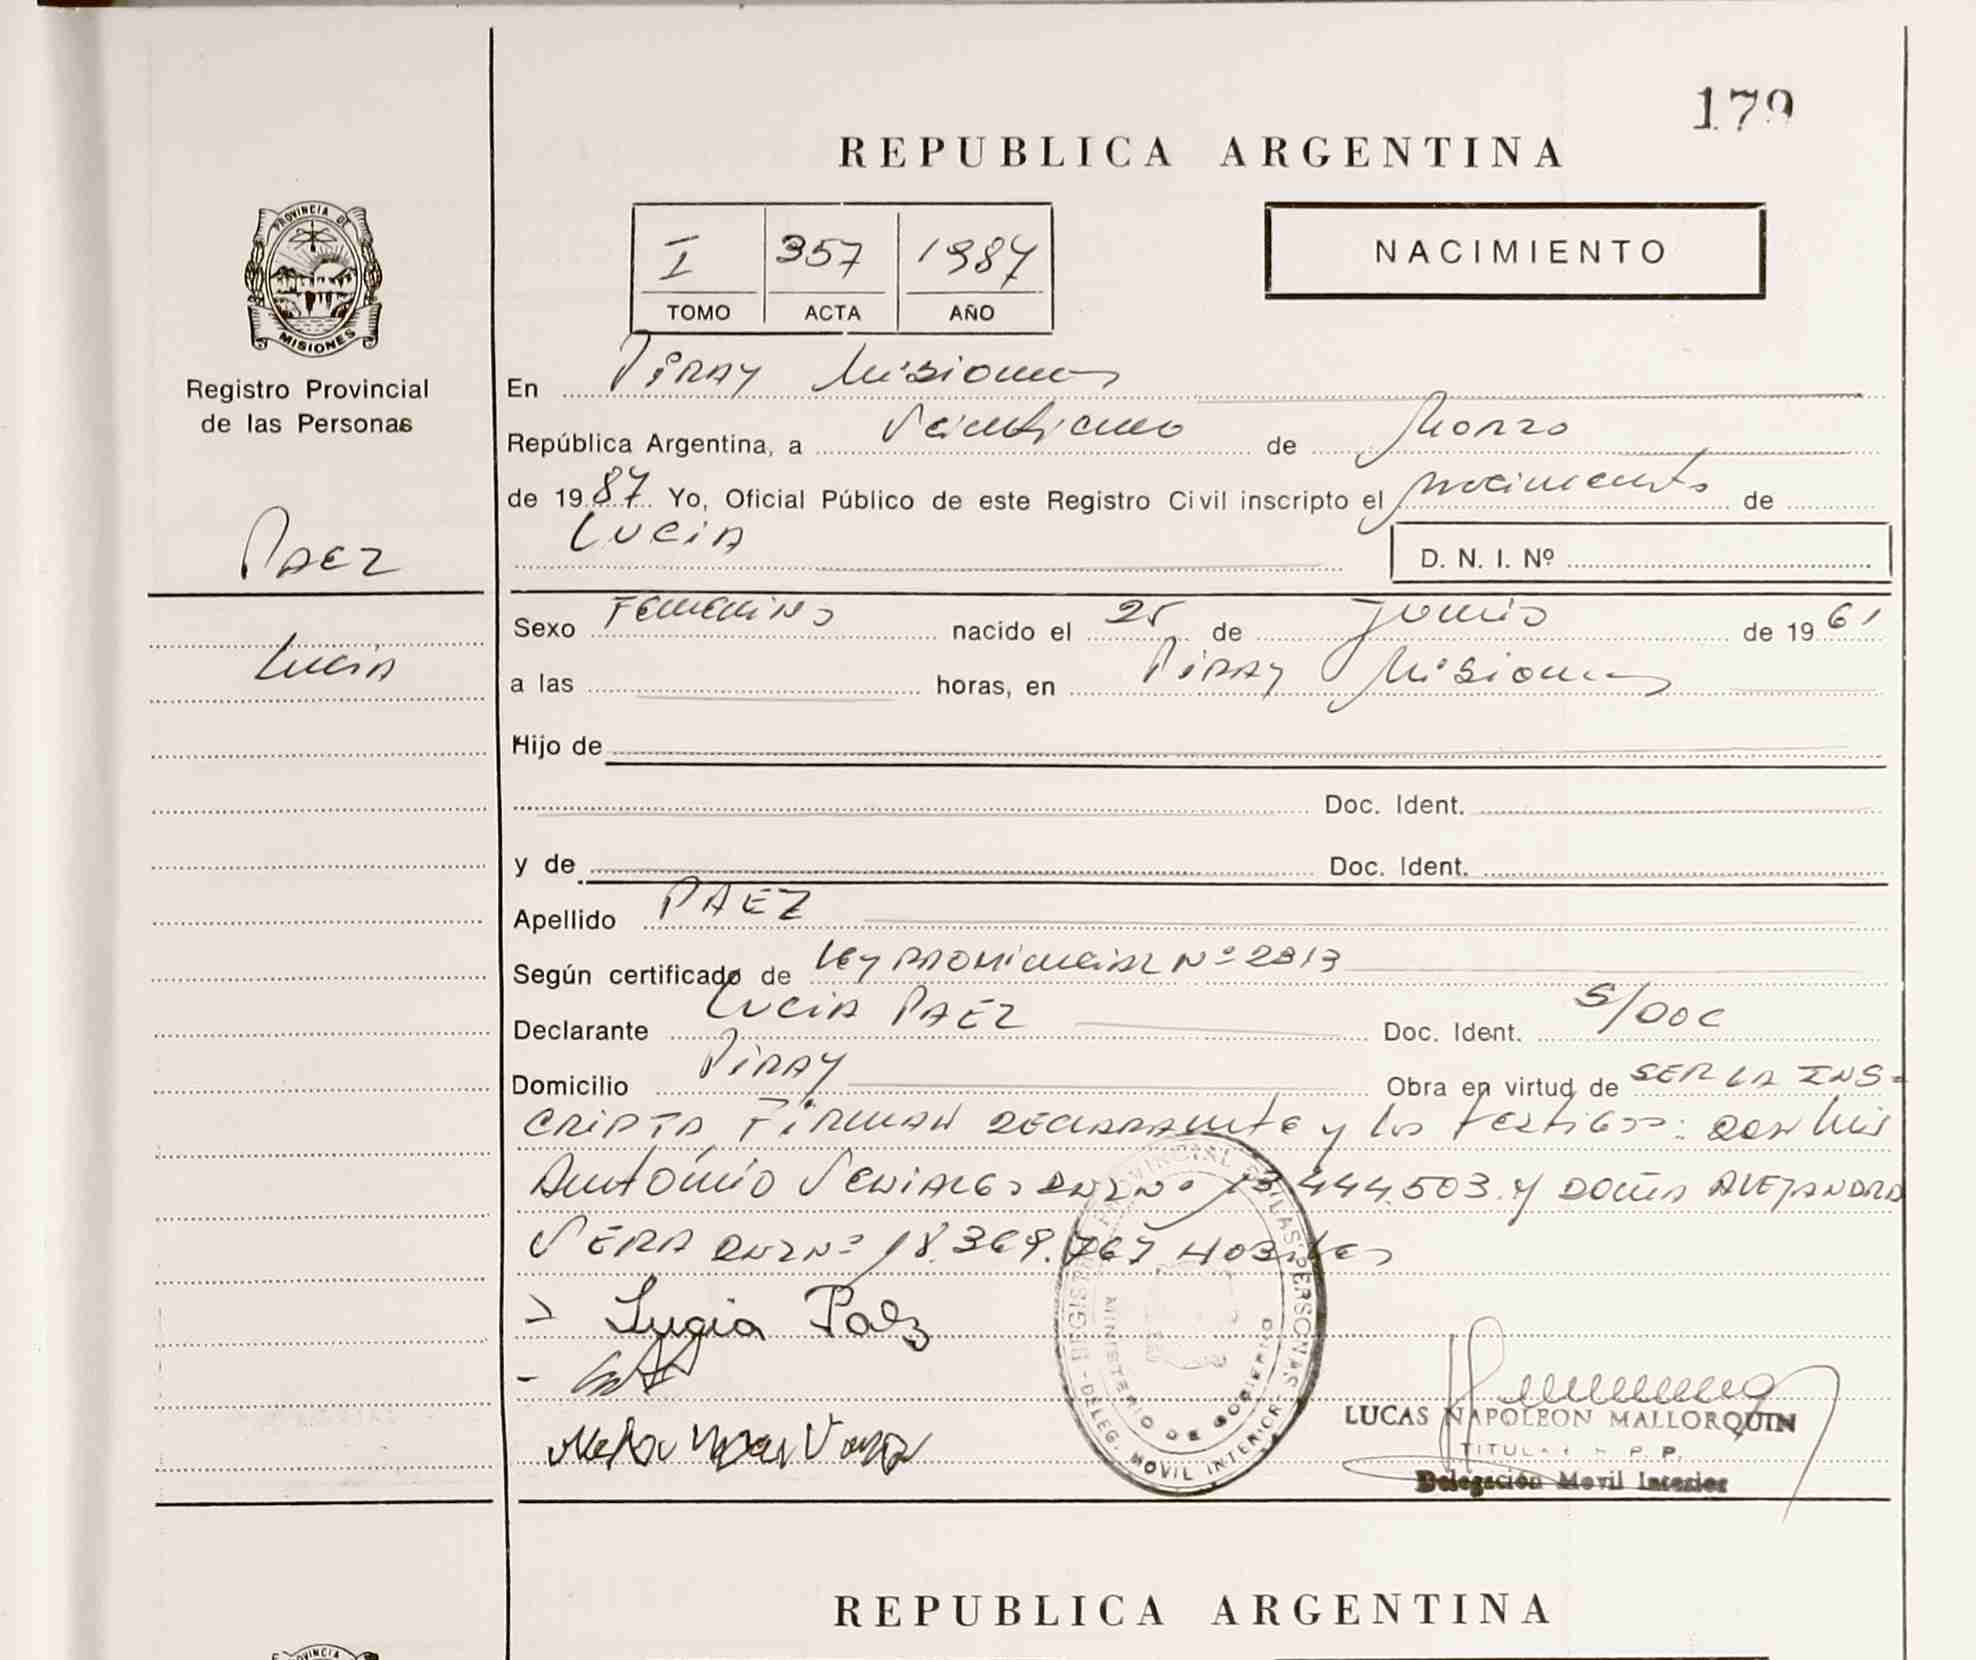 179
REPUBLICA ARGENTINA
PROVINCIA DE
MISIONES
Registro Provincial
de las Personas
I 357 1987
TOMO ACTA AÑO
NACIMIENTO
En Piray Misiones
República Argentina, a Veintiuno de Marzo
de 1987. Yo, Oficial Público de este Registro Civil inscripto el nacimiento de
LUCIA
D. N. I. Nº
PAEZ
Lucia
Sexo Femenino nacido el 25 de Junio de 1961
a las horas, en Piray Misiones
Hijo de
Doc. Ident.
y de Doc. Ident.
Apellido PAEZ
Según certificado de Ley Provincial Nº 2313
Declarante LUCIA PAEZ Doc. Ident. S/DOC
Domicilio Piray Obra en virtud de SER LA INS-
CRIPTA, Firman DECLARANte y los testigos: DON Luis
Antonio DNI Nº 13.444.503. y DOÑA ALEJANDRA
VERA DNI Nº 18.369.767
Lugia Paez
REGISTRO PROVINCIAL DE LAS PERSONAS
MINISTERIO DE GOBIERNO
DELEG. MOVIL INTERIOR
LUCAS NAPOLEON MALLORQUIN
TITULAR R.P.P.
Delegación Movil Interior
REPUBLICA ARGENTINA
PROVINCIA